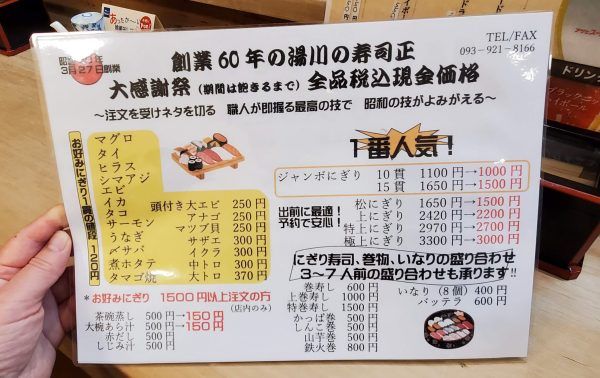 TEL/FAX
093-921-8166
3月27日創業
創業60年の湯川の寿司正
大感謝祭 (期間は飽きるまで) 全品税込現金価格
~注文を受けネタを切る 職人が即握る最高の技で 昭和の技がよみがえる~
お好みにぎり1貫の値段 120円
マグロ
タイ
ヒラス
シマアジ
エビ
イカ
タコ
サーモン
うなぎ
〆サバ
煮ホタテ
タマゴ焼
頭付き大エビ 250円
アナゴ 250円
マツブ貝 250円
サザエ 300円
イクラ 300円
中トロ 300円
大トロ 370円
*お好みにぎり 1500円以上注文の方
(店内のみ)
茶碗蒸し 500円→150円
大椀あら汁 500円→150円
赤だし 500円
しじみ汁 500円
1番人気!
ジャンボにぎり 10貫 1100円→1000円
15貫 1650円→1500円
出前に最適!
予約で安心!
松にぎり 1650円→1500円
上にぎり 2420円→2200円
特上にぎり 2970円→2700円
極上にぎり 3300円→3000円
にぎり寿司、巻物、いなりの盛り合わせ
3~7人前の盛り合わせも承ります!!
巻寿し 600円
上巻寿し 1000円
特巻寿し 1500円
かっぱ巻 500円
しんこ巻 500円
山芋巻 500円
鉄火巻 800円
いなり(8個) 400円
バッテラ 600円
ドリン